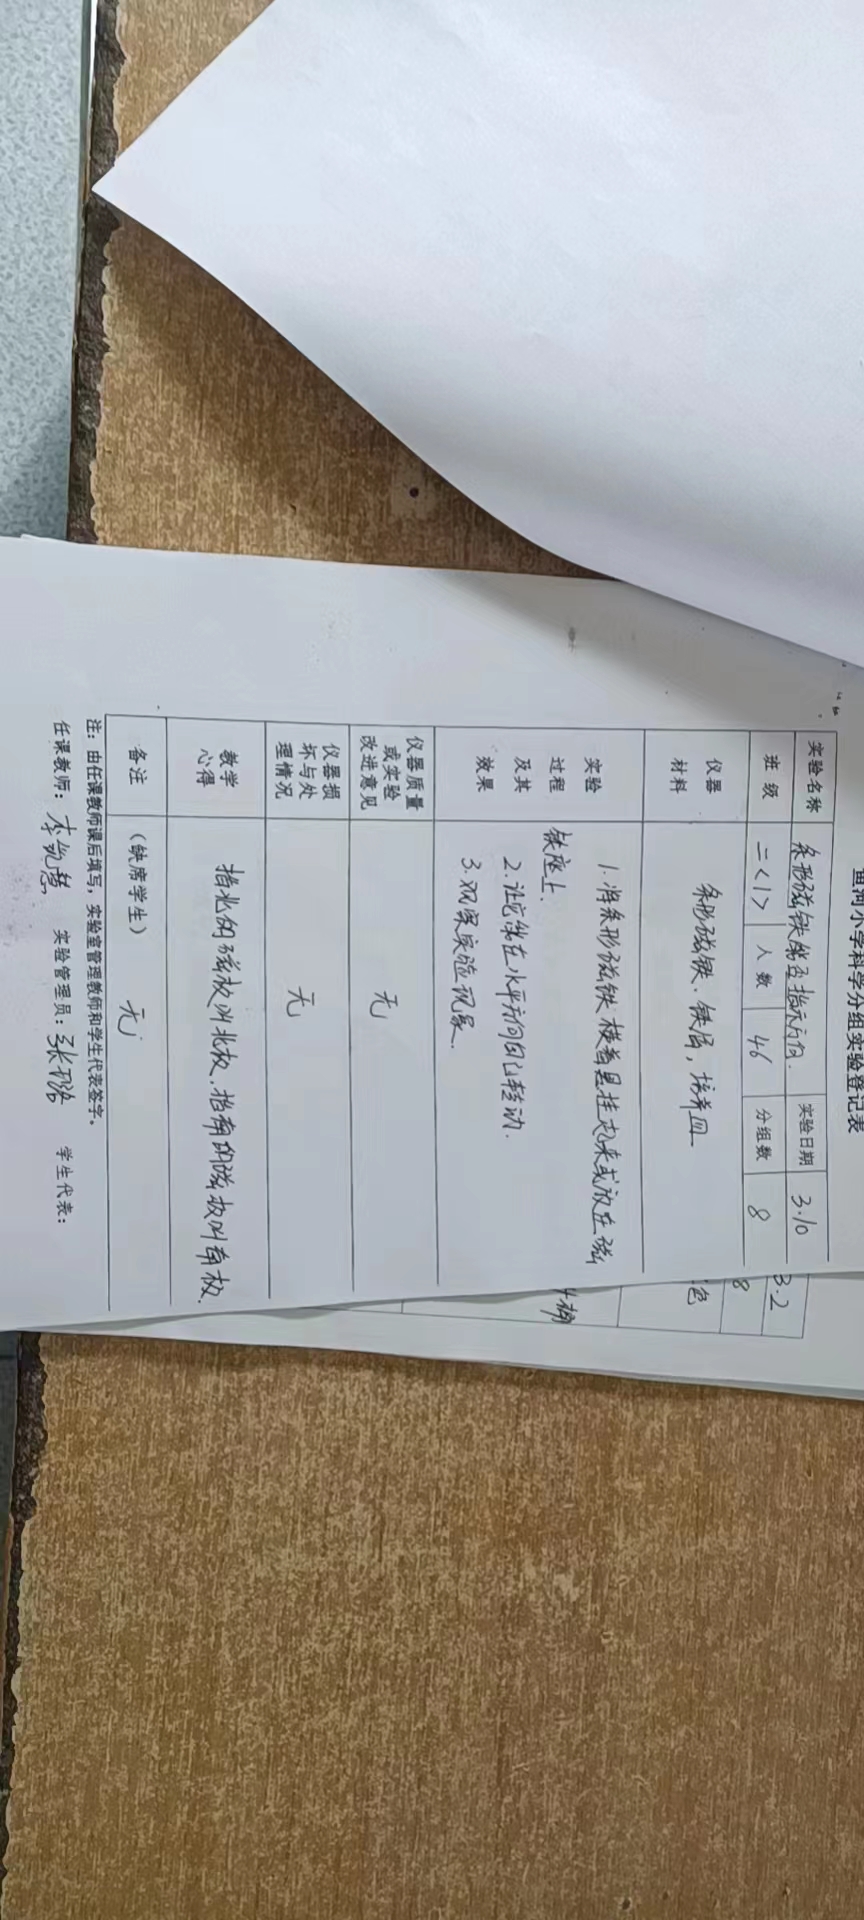 鱼河小学科学分组实验登记表
实验名称 条形磁铁能否指示方向. 实验日期 3.10
班级 二<1> 人数 46 分组数 8
仪器材料 条形磁铁、铁屑，培养皿
实验过程及其效果 1.将条形磁铁横着悬挂起来或放在磁
铁座上.
2.让它能在水平方向自己转动.
3.观察实验现象.
仪器质量或实验改进意见 无
仪器损坏与处理情况 无
教学心得 指北的磁极叫北极.指南的磁极叫南极.
备注 (缺席学生) 无
注：由任课教师课后填写，实验室管理教师和学生代表签字。
任课教师： 实验管理员： 学生代表：
3.2
8
色